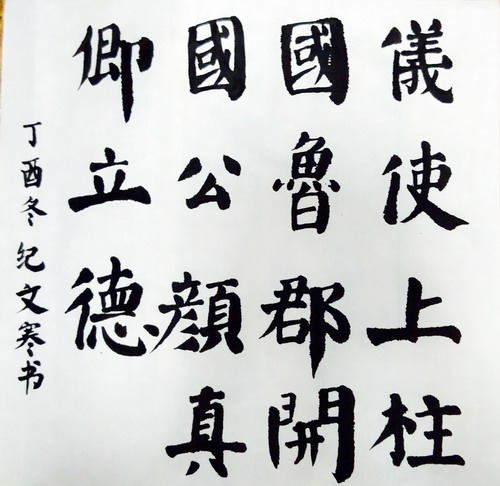 儀使上柱
國魯郡開
國公顔真
卿立德
丁酉冬纪文寒书